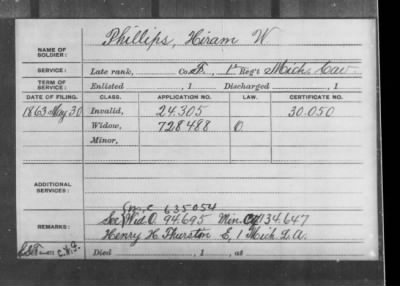 NAME OF SOLDIER: Phillips, Hiram W
SERVICE: Late rank, Co. F, 1st Reg't Mich. Cav.
TERM OF SERVICE: Enlisted , 1 Discharged , 1
DATE OF FILING. CLASS. APPLICATION NO. LAW. CERTIFICATE NO.
1863 May 30 Invalid, 24.305 30.050
Widow, 728488 O.
Minor,
ADDITIONAL SERVICES:
m. c 635054
REMARKS: See Wid. O. 94.695 Min. 134.647
Henry H. Thurston E, 1 Mich. L.A.
Died , 1 , at